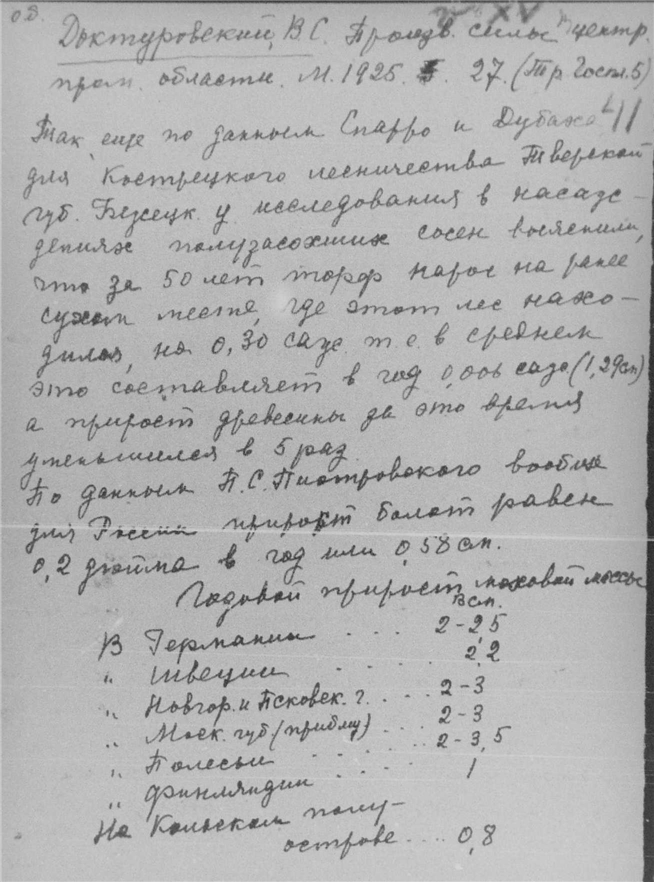 XV
Доктуровский, В.С. Произв. силы центр.
пром. области. М. 1925. 27. (Тр. Госпл. 5)
Так, еще по данным Спарро и Дубаха 41
для Кострецкого лесничества Тверской
губ. Бежецк. у. исследования в насаж-
дениях полузасохших сосен выяснили,
что за 50 лет торф нарос на ранее
сухом месте, где этот лес нахо-
дился, на 0,30 саж. т.е. в среднем
это составляет в год 0,006 саж. (1,29 см)
а прирост древесины за это время
уменьшился в 5 раз.
По данным П.С. Пиотровского вообще
для России прирост болот равен
0,2 дюйма в год или 0,58 см.
Годовой прирост моховой массы
в см.
В Германии . . . . 2-2,5
" Швеции . . . . 2,2
" Новгор. и Псковск. г. . . . . 2-3
" Моск. губ. (приблиз) . . . . 2-3
" Полесьи . . . . 2-3,5
" Финляндии . . . . 1
На Кольском полу-
острове . . . . 0,8